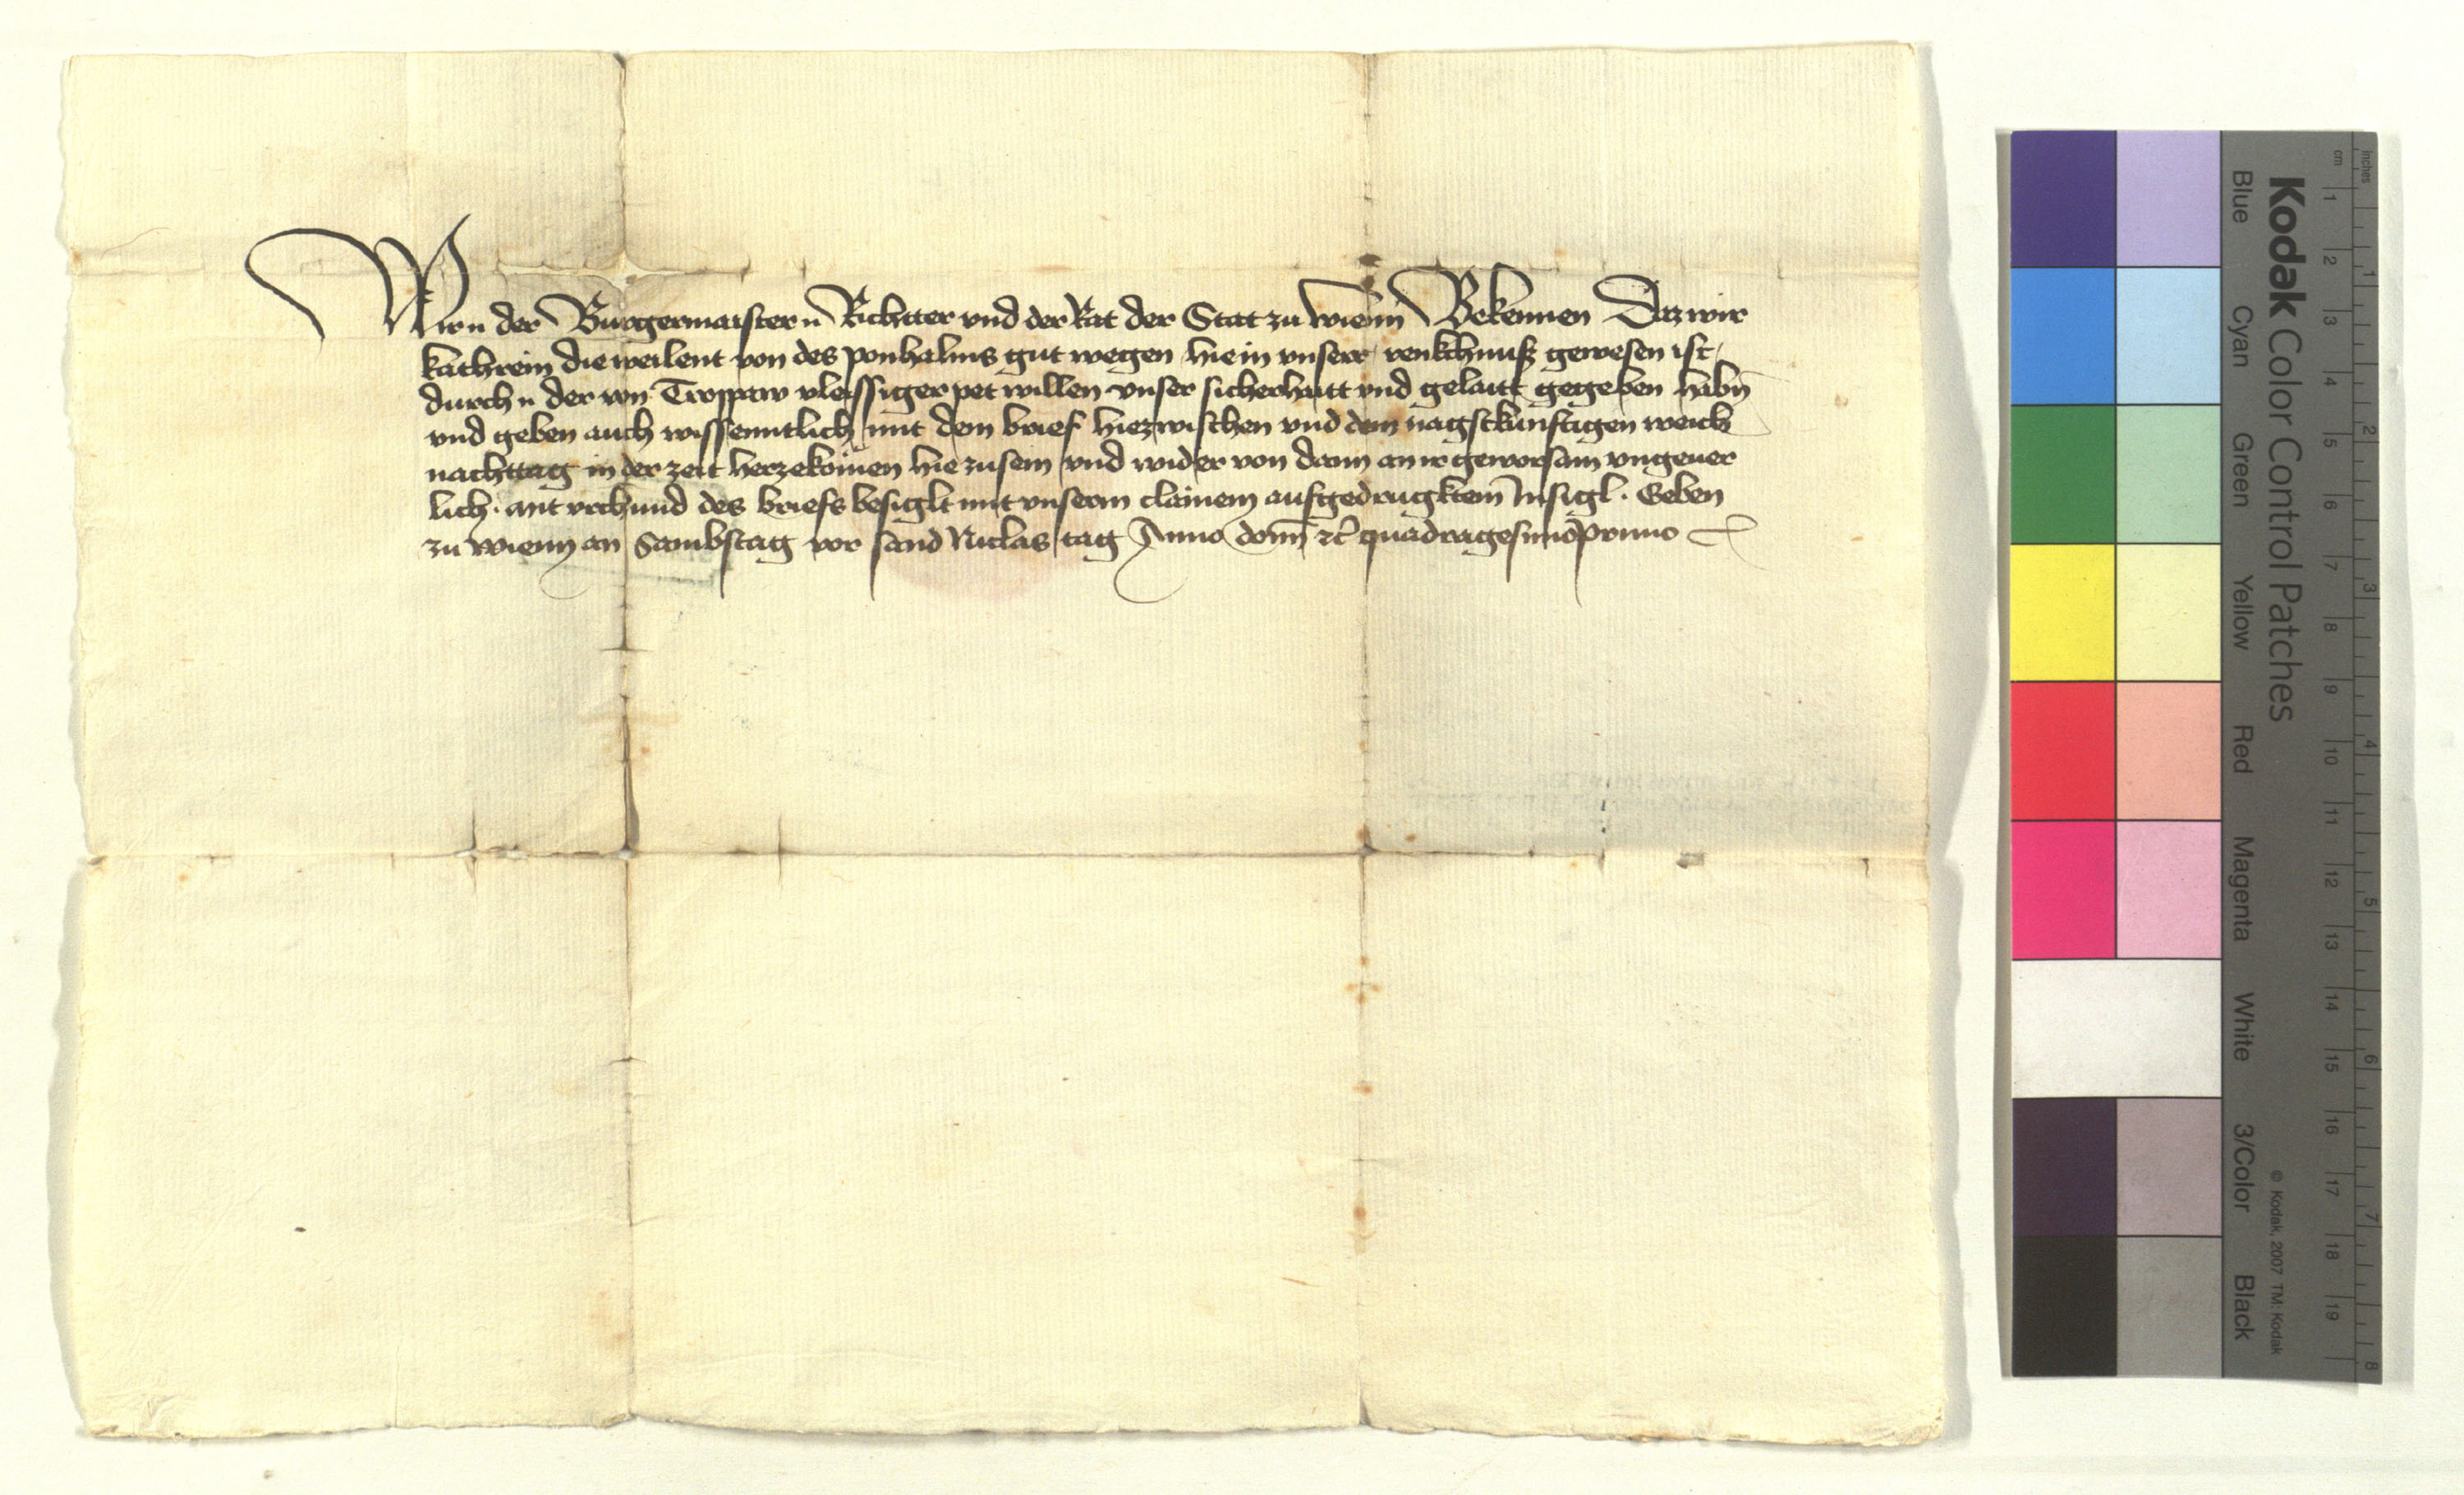 Wir der Burgermaister Richtter vnd der Rat der Stat zu Wienn Bekennen Daz wir
kathrein die weilent von des ponhalms gut wegen hie in vnserr venkchnuss gewesen ist
durch der von Troppaw vleissiger pet willen vnser sicherhaitt vnd gelaitt gegeben habn
vnd geben auch wissenntlich mit dem brief hiezwischen vnd dem nagstkunftigen weich
nachttag in der zeit herzekomen hie zu sein vnd wider von dann an ir gewarsam vngeuer
lich. mit vrkund des briefs besiglt mit vnserm clainem aufgedrugktem Insigl. Geben
zu Wienn an Sambstag vor sand Niclas tag Anno domini etc quadragesimoprimo
Kodak Color Control Patches
Blue Cyan Green Yellow Red Magenta White 3/Color Black
© Kodak, 2007 TM: Kodak
cm 1 2 3 4 5 6 7 8 9 10 11 12 13 14 15 16 17 18 19
inches 1 2 3 4 5 6 7 8